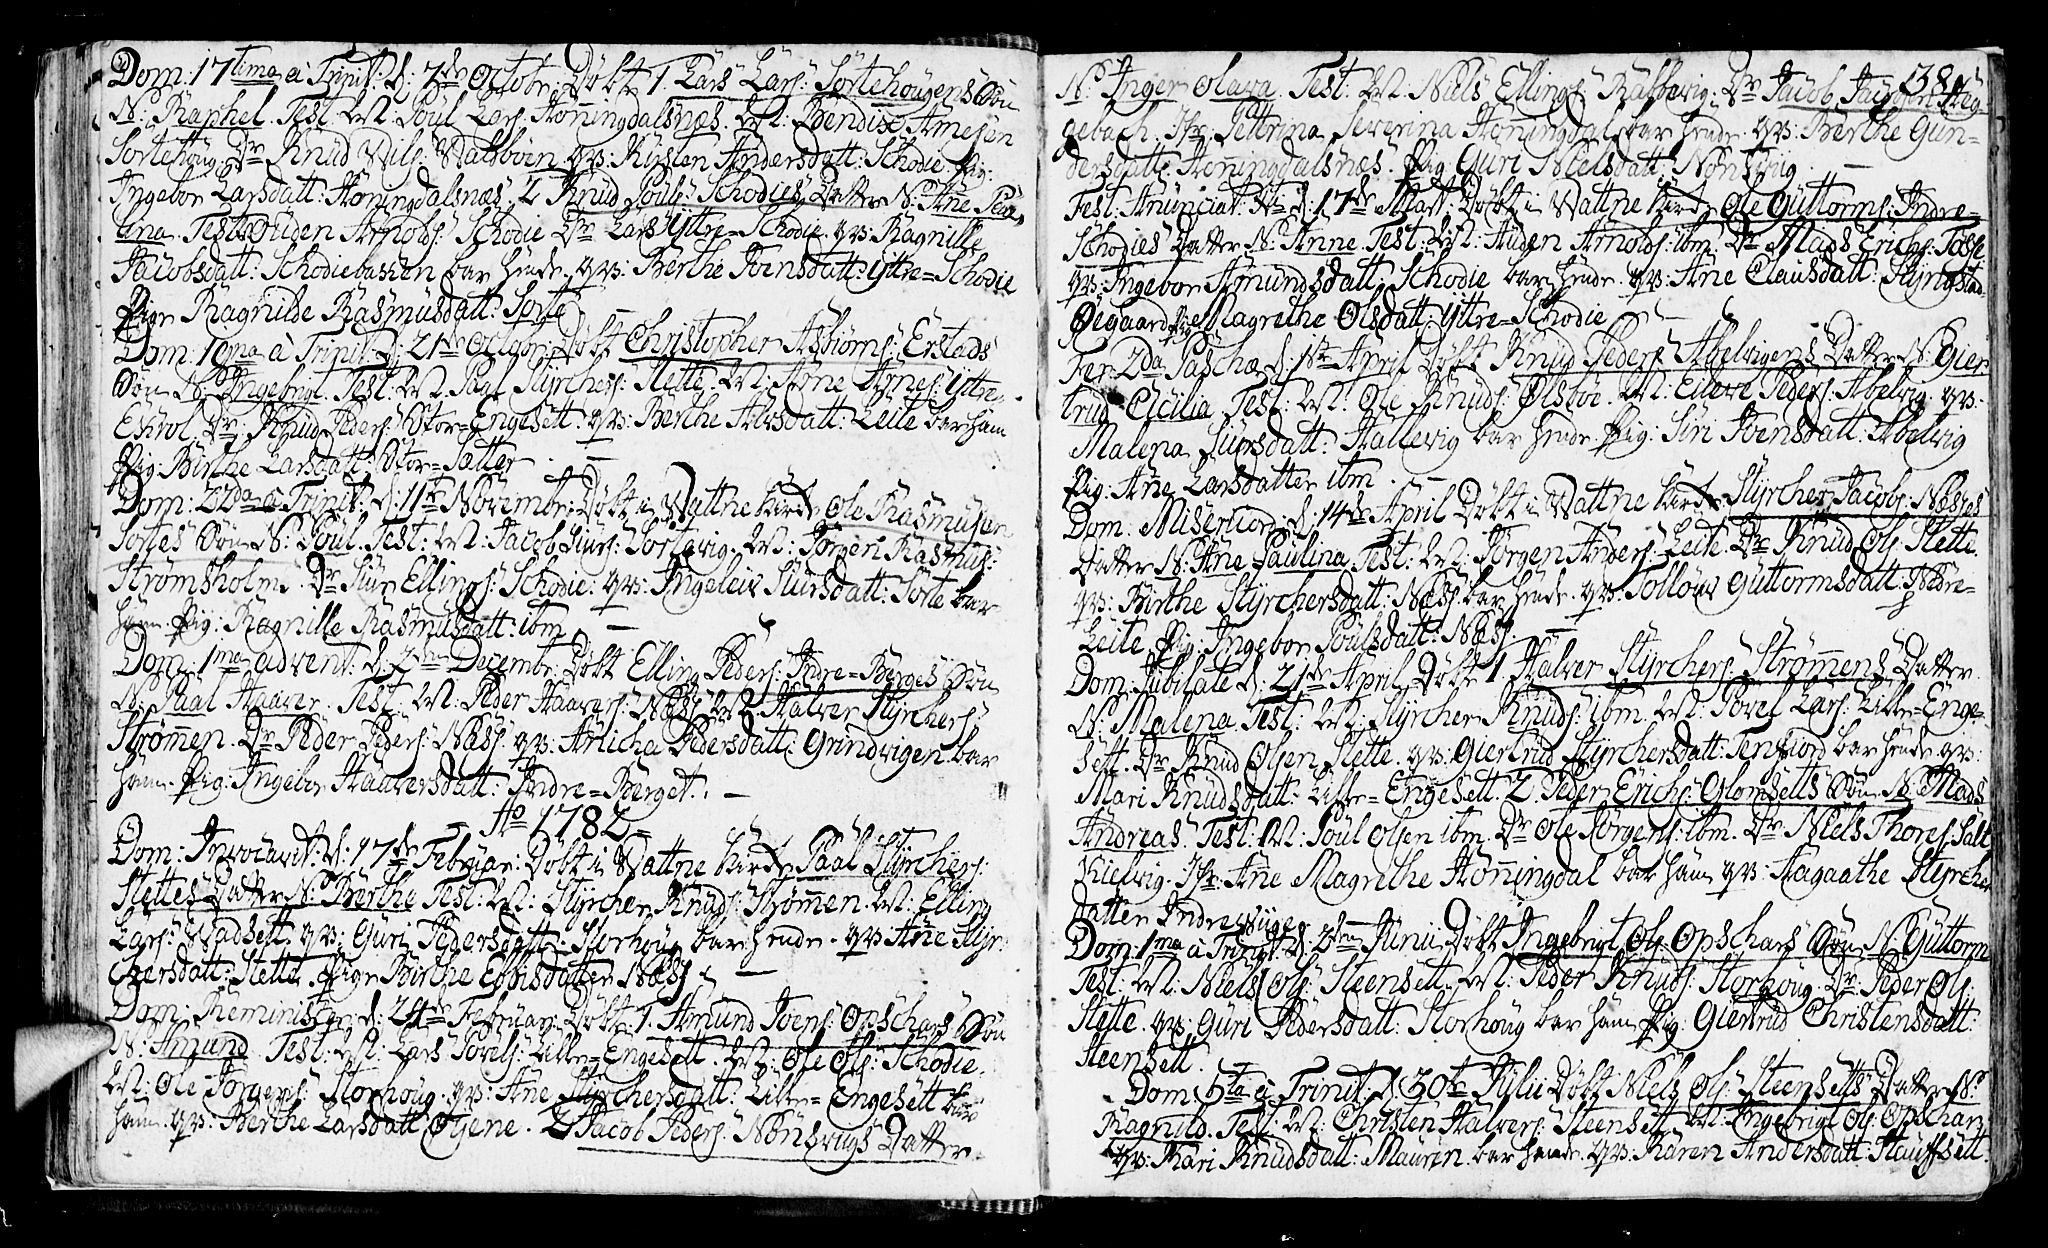 Dom: 17tima à Trinit: d: 7de Octobr: Døbt 1. Lars Lars: Sortehougens Søn
N: Raphel. Test: M: Poul Lars: Honningdalsnæs. M: Bendix Arnesøn
Sortehoug. Dr Knud Nils: Walsbøen qv: Kirsten Andersdatt: Schodie Pig:
Ingebor Larsdatt: Honingdalsnæs. 2 Knud Pouls: Schodies Datter N: Ane
Test: Auden Arnolds: Schodie Dr Lars Yttre=Schodie. qv: Ragnille
Jacobsdatt: Schodiebachen bar hende. qv: Berthe Iversdatt: Yttre=Schodie
Pige Ragnilde Rasmusdatt: Sorte
Dom: 19na à Trinit: d: 21de Octobr: Døbt Christopher Asbiørns: Erstads
Søn N: Ingebrigt. Test: M: Paal Styrchers: Slette. M: Arne Arnes: Yttre-
Dr: Knud Peders: Stor=Engesett. qv: Berthe Larsdatt: Leite bar ham
Pig: Birthe Larsdatt: Stor=Sætter.
Dom: 22da à Trinit: d: 11te Novembr: Døbt i Vattne Kirche Ole Rasmusen
Sortes Søn N: Poul. Test: M: Jacob Siurs: Sortevig. M: Jørgen Rasmus:
Strømsholm. Dr Siur Ellings: Schodie. qv: Ingeleiv Siursdatt: Sorte bar
ham. Pig: Ragnille Rasmusdatt: ibm
Dom: 1ma advent: d: 2den Decembr: Døbt Elling Peders: Indre=Berges Søn
N: Paal Haaver. Test: M: Peder Haavers: Næss M: Halver Styrchers:
Strømmen. Dr Peder Peders: Næss. qv: Anicha Pedersdatt: Grindvigen bar
ham. Pig: Ingebor Haaversdatt: Indre=Berget.
Ao 1782
Dom: Invocavit: d: 17de Februar: Døbt i Vattne Kirche Paal Styrchers:
Slettes Datter N: Berthe Test: M: Styrcher Knuds: Strømmen. M: Elling
Lars: Vadsett. qv: Guri Pedersdatt: Storhoug bar hende. qv: Ane Styr-
chersdatt: Slette. Pige Birthe Datter Næss
Dom: Reminiscere d: 24de Februar Døbt 1. Amund Ivers: Opschars Søn
N: Amund. Test: M: Lars Povels: Lille=Engesett. M: Ole Ols: Schodie.
M: Ole Jørgens: Storhoug. qv: Ane Styrchersdatt: Lille=Engesett bar
ham. qv: Berthe Larsdatt: Ojene. 2 Jacob Peders: Nonsvigs Datter
38
N: Inger Olava Test: M: Niels Ellings: Jacob
gebach. Jfr: Petterina Severina Honningdal bar hende. qv: Berthe Gun-
dersdatt: Honningdalsnæs. Pig: Guri Nielsdatt: Nonsvig.
Fest: Anunciat: d: 17de Mart: Døbt i Vattne Kirche Ole Guttorms: Indre=
Schodies Datter N: Anne Test: M: Auden Arnolds: ibm. Dr Mads Erichs: Tosse
qv: Ingebor Amundsdatt: Schodie bar hende. qv: Ane Clausdatt: Skyngstad
Øegaard Pige Magrethe Olsdatt: Yttre=Schodie
Fer 2da Paschæ d: 1ste April Døbt Knud Peders: Abelvigens Datter N: Gier
trud Cicilia. Test: M: Ole Knuds: Olsboe. M: Eilert Peders: Abelvig. qv:
Malena Siursdatt: Hallevig bar hende Pig: Siri Iversdatt: Abelvig
Pig: Ane Larsdatter ibm.
Dom. Misericord: d: 14de April Døbt i Vattne Kirche Styrcher Jacobs: Næsses
Datter N: Ane Paulina Test: M: Jørgen Anders: Leite. Dr Knud Ols: Slette.
qv: Birthe Styrchersdatt: Næss bar hende. qv: Solløv Guttormsdatt: Nedre=
Leite. Pig: Ingebor Poulsdatt: Næss.
Dom: Jubilate d: 21de April Døbt 1. Halver Styrchers: Strømmens Datter
N: Malena. Test: M: Styrcher Knuds: ibm. M: Povel Lars: Lille=Enge-
sett. Dr Knud Olsen Slette. qv: Giertrud Styrchersdatt: Tenfiord bar hende. qv:
Mari Knudsdatt: Lille=Engesett. 2. Peder Erichs: Glomsetts Søn N: Mads
Andreas. Test: M: Poul Olsen ibm. Dr Ole Jørgens: ibm. Dr Niels Thores: Salt
Kielvig. Jfr: Ane Magrethe Honningdal bar ham. qv: Aagaathe Styrcher
datter Indre Viigen
Dom: 1ma à Trinit: d: 2den Junii Døbt Ingebrigt Ols: Opschars Søn N: Guttorm
Test: M: Niels Ols: Steensett. M: Peder Knuds: Storhoug. Dr Peder Ols:
Slette. qv: Guri Pedersdatt: Storhoug bar ham Pig: Giertrud Christensdatt:
Steensett.
Dom 5ta à Trinit: d: 30te Junii Døbt Niels Ols: Steensetts Datter N:
Ragnild. Test: M: Christen Halvers: Steensett. M: Ingebrigt Ols: Opschar
qv: Kari Knudsdatt: Maurin bar hende. qv: Karen Andersdatt: Hauffsett.